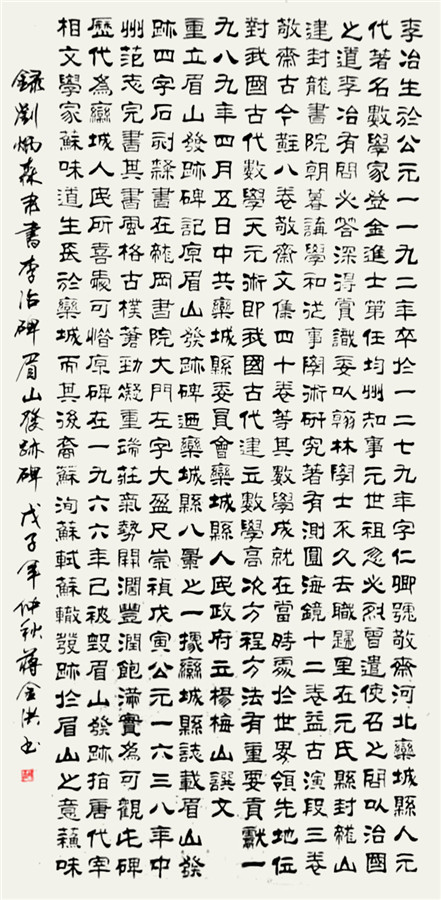 李冶生於公元一一九二年卒於一二七九年字仁卿號敬齋河北欒城縣人元
代著名數學家登金進士第任均州知事元世祖忽必烈曾遣使召之問以治國
之道李冶有問必答深得賞識委以翰林學士不久去職歸里在元氏縣封龍山
建封龍書院朝暮講學和從事學術研究著有測圓海鏡十二卷益古演段三卷
敬齋古今黈八卷敬齋文集四十卷等其數學成就在當時處於世界領先地位
對我國古代數學天元術即我國古代建立數學高次方程方法有重要貢獻一
九八九年四月五日中共欒城縣委員會欒城縣人民政府立楊梅山譔文
重立眉山發跡碑記原眉山發跡碑迺欒城縣八景之一據欒城縣誌載眉山發
跡四字石刻隸書在龍岡書院大門左字大盈尺崇禎戊寅公元一六三八年中
州范志完書其書風格古樸蒼勁凝重端莊氣勢開闊豐潤飽滿實為可觀此碑
歷代為欒城人民所喜愛可惜原碑在一九六六年已被毀眉山發跡指唐代宰
相文學家蘇味道生長於欒城而其後裔蘇洵蘇軾蘇轍發跡於眉山之意蘇味
錄劉炳森君書李冶碑眉山發跡碑戊子年仲秋蔣金洪書